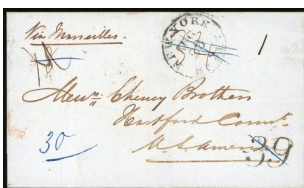 Via Marseilles.
NEW YORK
1
Messrs Cheney Brothers
Hartford Connt
30
U.S. America
39